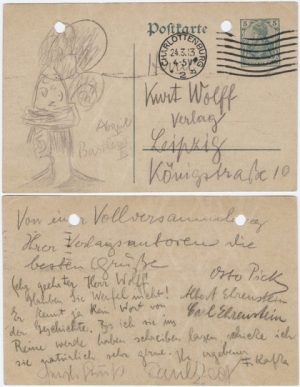 Postkarte
CHARLOTTENBURG
24.3.13
4-5N
2
5
Herrn
Kurt Wolff
Verlag
Leipzig
Königstraße 10
Abgeb.
Von einer Vollversammlung
Ihrer Verlagsautoren die
besten Grüße
Otto Pick
Albert Ehrenstein
Carl Ehrenstein
Sehr geehrter Herr Wolff!
Glauben Sie Werfel nicht!
Er kennt ja kein Wort von
der Geschichte. Bis ich sie ins
Reine werde haben schreiben lassen, schicke ich
sie natürlich sehr gerne. Ihr ergebener
F. Kafka